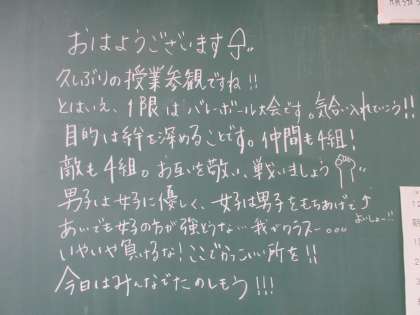 おはようございます
久しぶりの授業参観ですね!!
とはいえ、1限はバレーボール大会です。気合い入れていこう!!
目的は絆を深めることです。仲間も4組!
敵も4組。お互いを敬い、戦いましょう
男子は女子に優しく、女子は男子をもちあげて♪
よいしょー!!
あいでも女子の方が強どうな…我がクラスー…。。
いやいや負けるな!ここでかっこいい所を!!
今日はみんなでたのしもう!!!